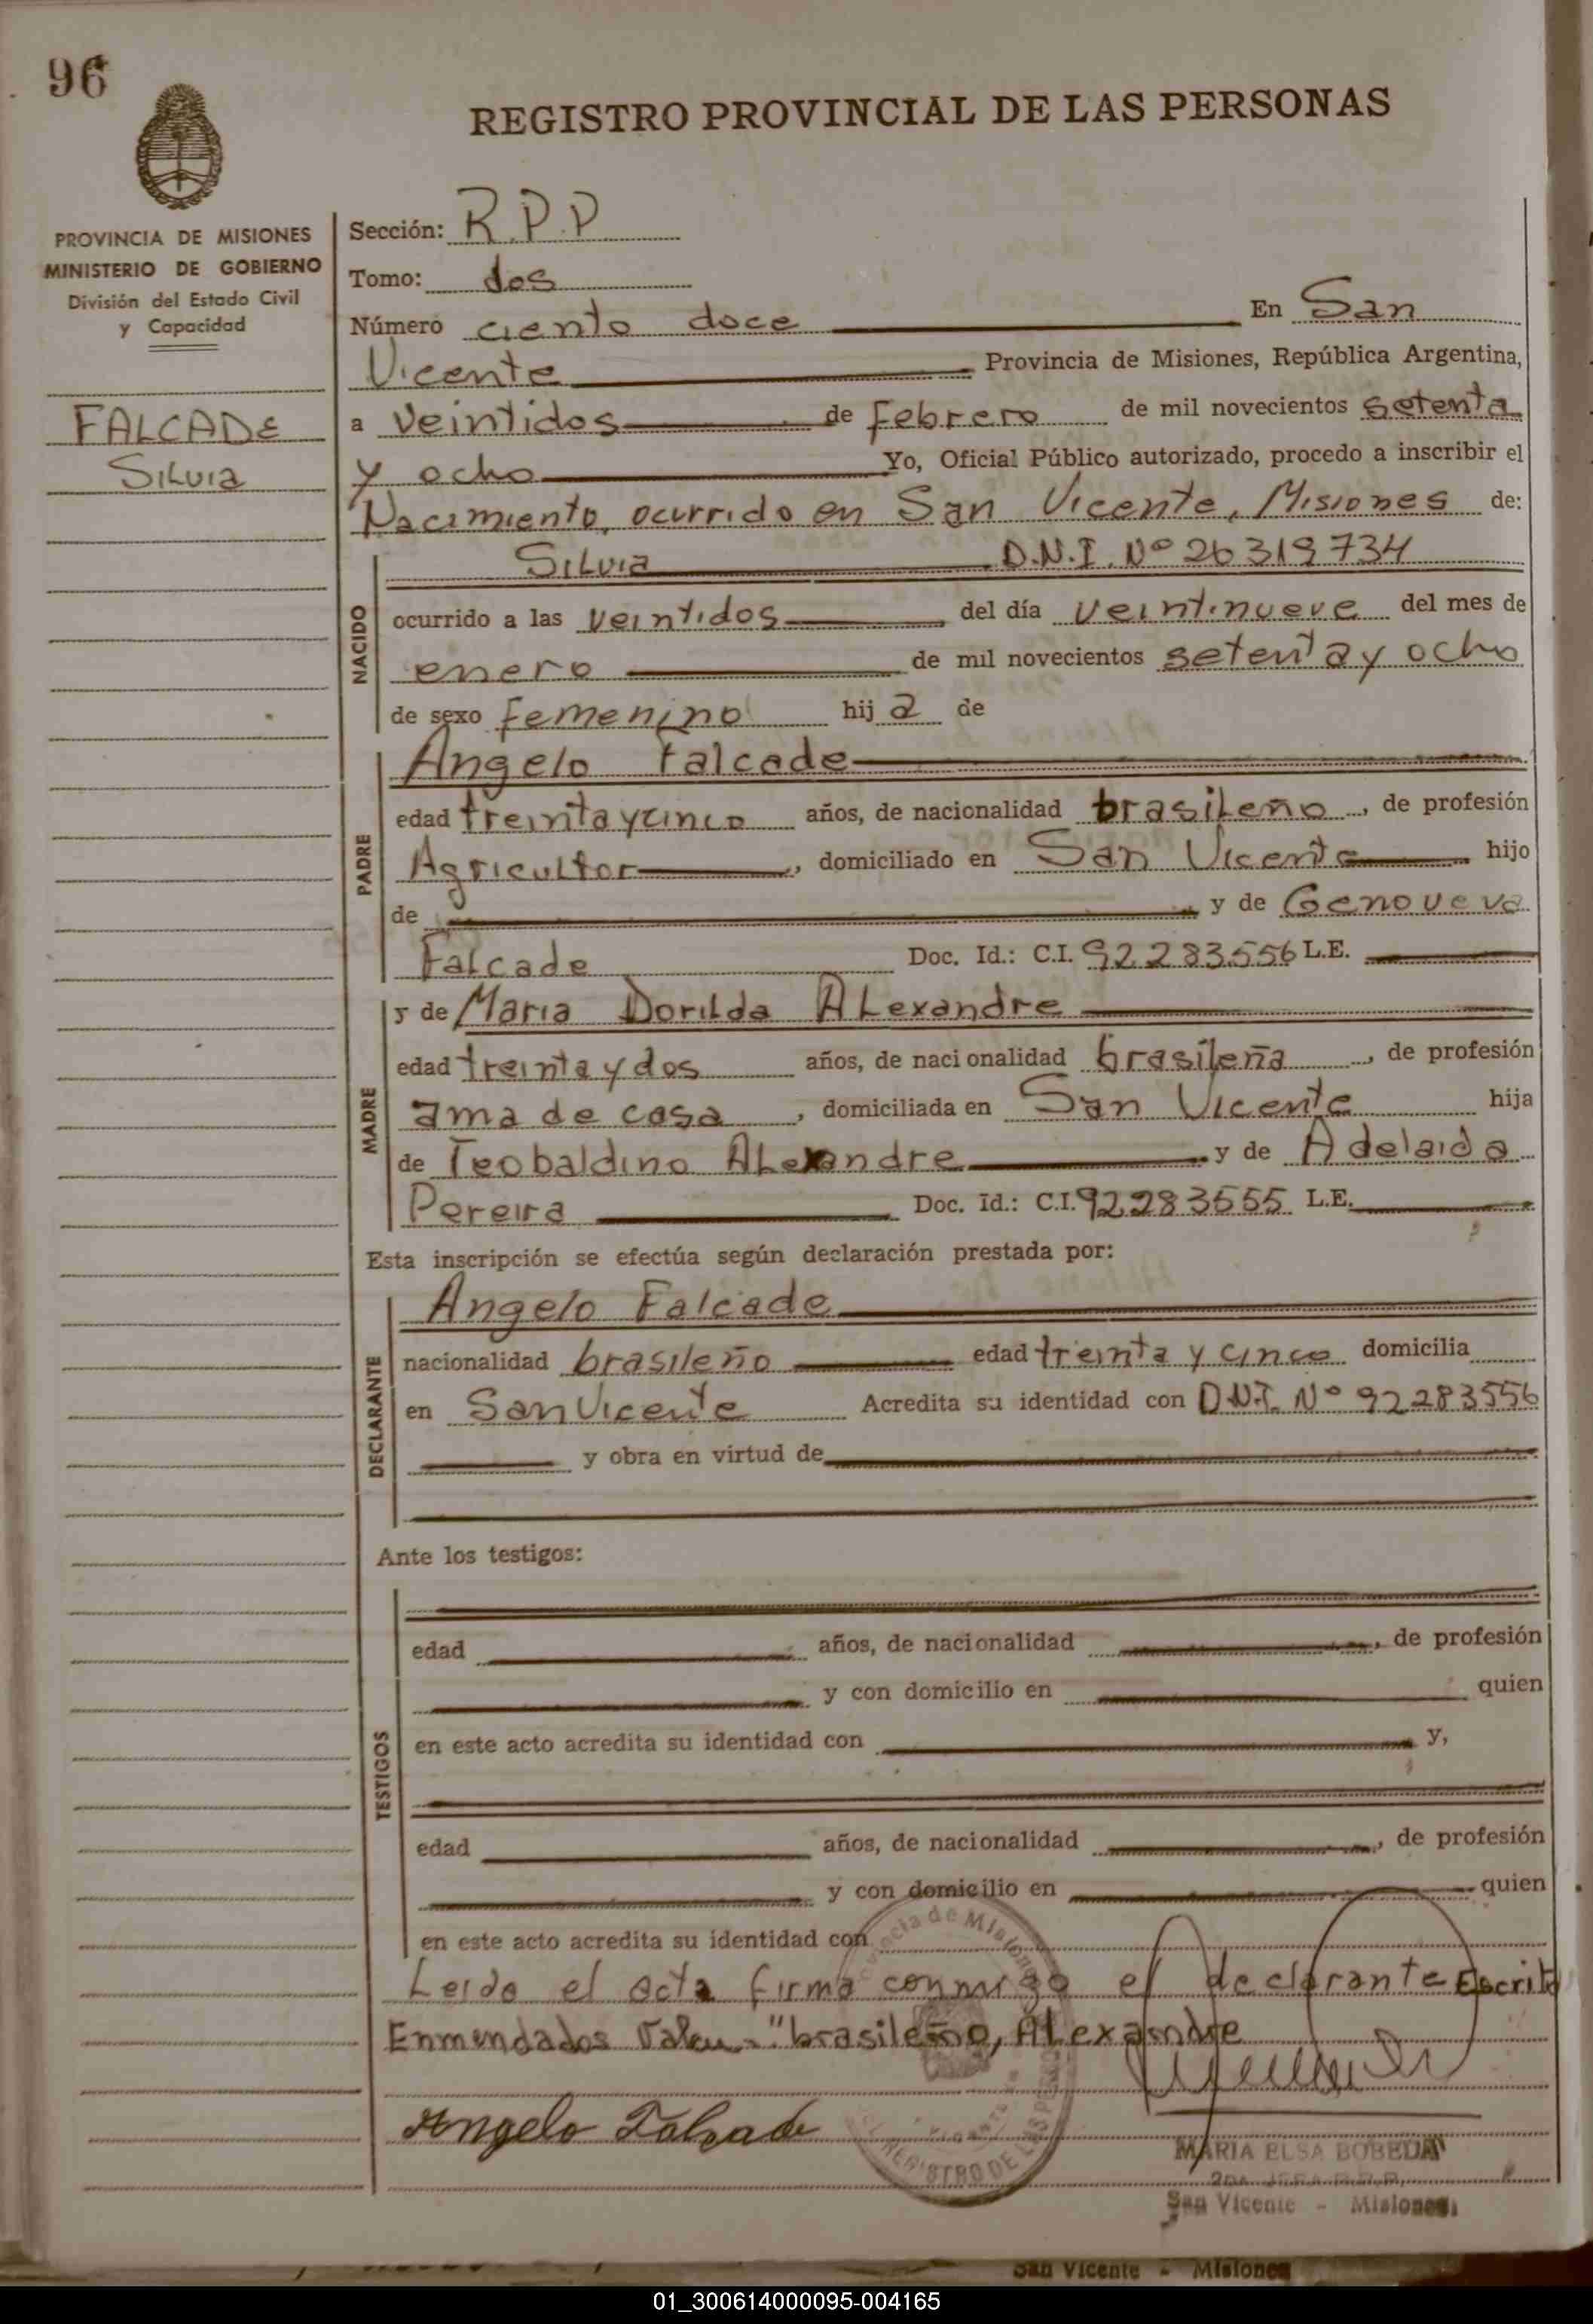 96
REGISTRO PROVINCIAL DE LAS PERSONAS
PROVINCIA DE MISIONES
MINISTERIO DE GOBIERNO
División del Estado Civil
y Capacidad
FALCADE
Silvia
Sección: R.P.P
Tomo: dos
Número ciento doce En San
Vicente Provincia de Misiones, República Argentina,
a veintidos de febrero de mil novecientos setenta
y ocho Yo, Oficial Público autorizado, procedo a inscribir el
Nacimiento, ocurrido en San Vicente, Misiones de:
NACIDO
Silvia D.N.I. Nº 26319734
ocurrido a las veintidos del día veintinueve del mes de
enero de mil novecientos setenta y ocho
de sexo femenino hij a de
PADRE
Angelo Falcade
edad treinta y cinco años, de nacionalidad brasileño, de profesión
Agricultor, domiciliado en San Vicente hijo
de y de Genoveva
Falcade Doc. Id.: C.I. 92283556 L.E.
MADRE
y de Maria Dorilda Alexandre
edad treinta y dos años, de nacionalidad brasileña, de profesión
ama de casa, domiciliada en San Vicente hija
de Teobaldino Alexandre y de Adelaida
Pereira Doc. Id.: C.I. 92283555 L.E.
Esta inscripción se efectúa según declaración prestada por:
DECLARANTE
Angelo Falcade
nacionalidad brasileño edad treinta y cinco domicilia
en San Vicente Acredita su identidad con D.N.I. Nº 92283556
y obra en virtud de
Ante los testigos:
TESTIGOS
edad años, de nacionalidad , de profesión
y con domicilio en quien
en este acto acredita su identidad con y,
edad años, de nacionalidad , de profesión
y con domicilio en quien
en este acto acredita su identidad con
Leida el acta firma conmigo el declarante Escrito
Enmendados Valen- "brasileño, Alexandre
Angelo Falcade
MARIA ELSA BOBEDA
2da. JEFA R.P.P.
San Vicente - Misiones
San Vicente - Misiones
01_300614000095-004165